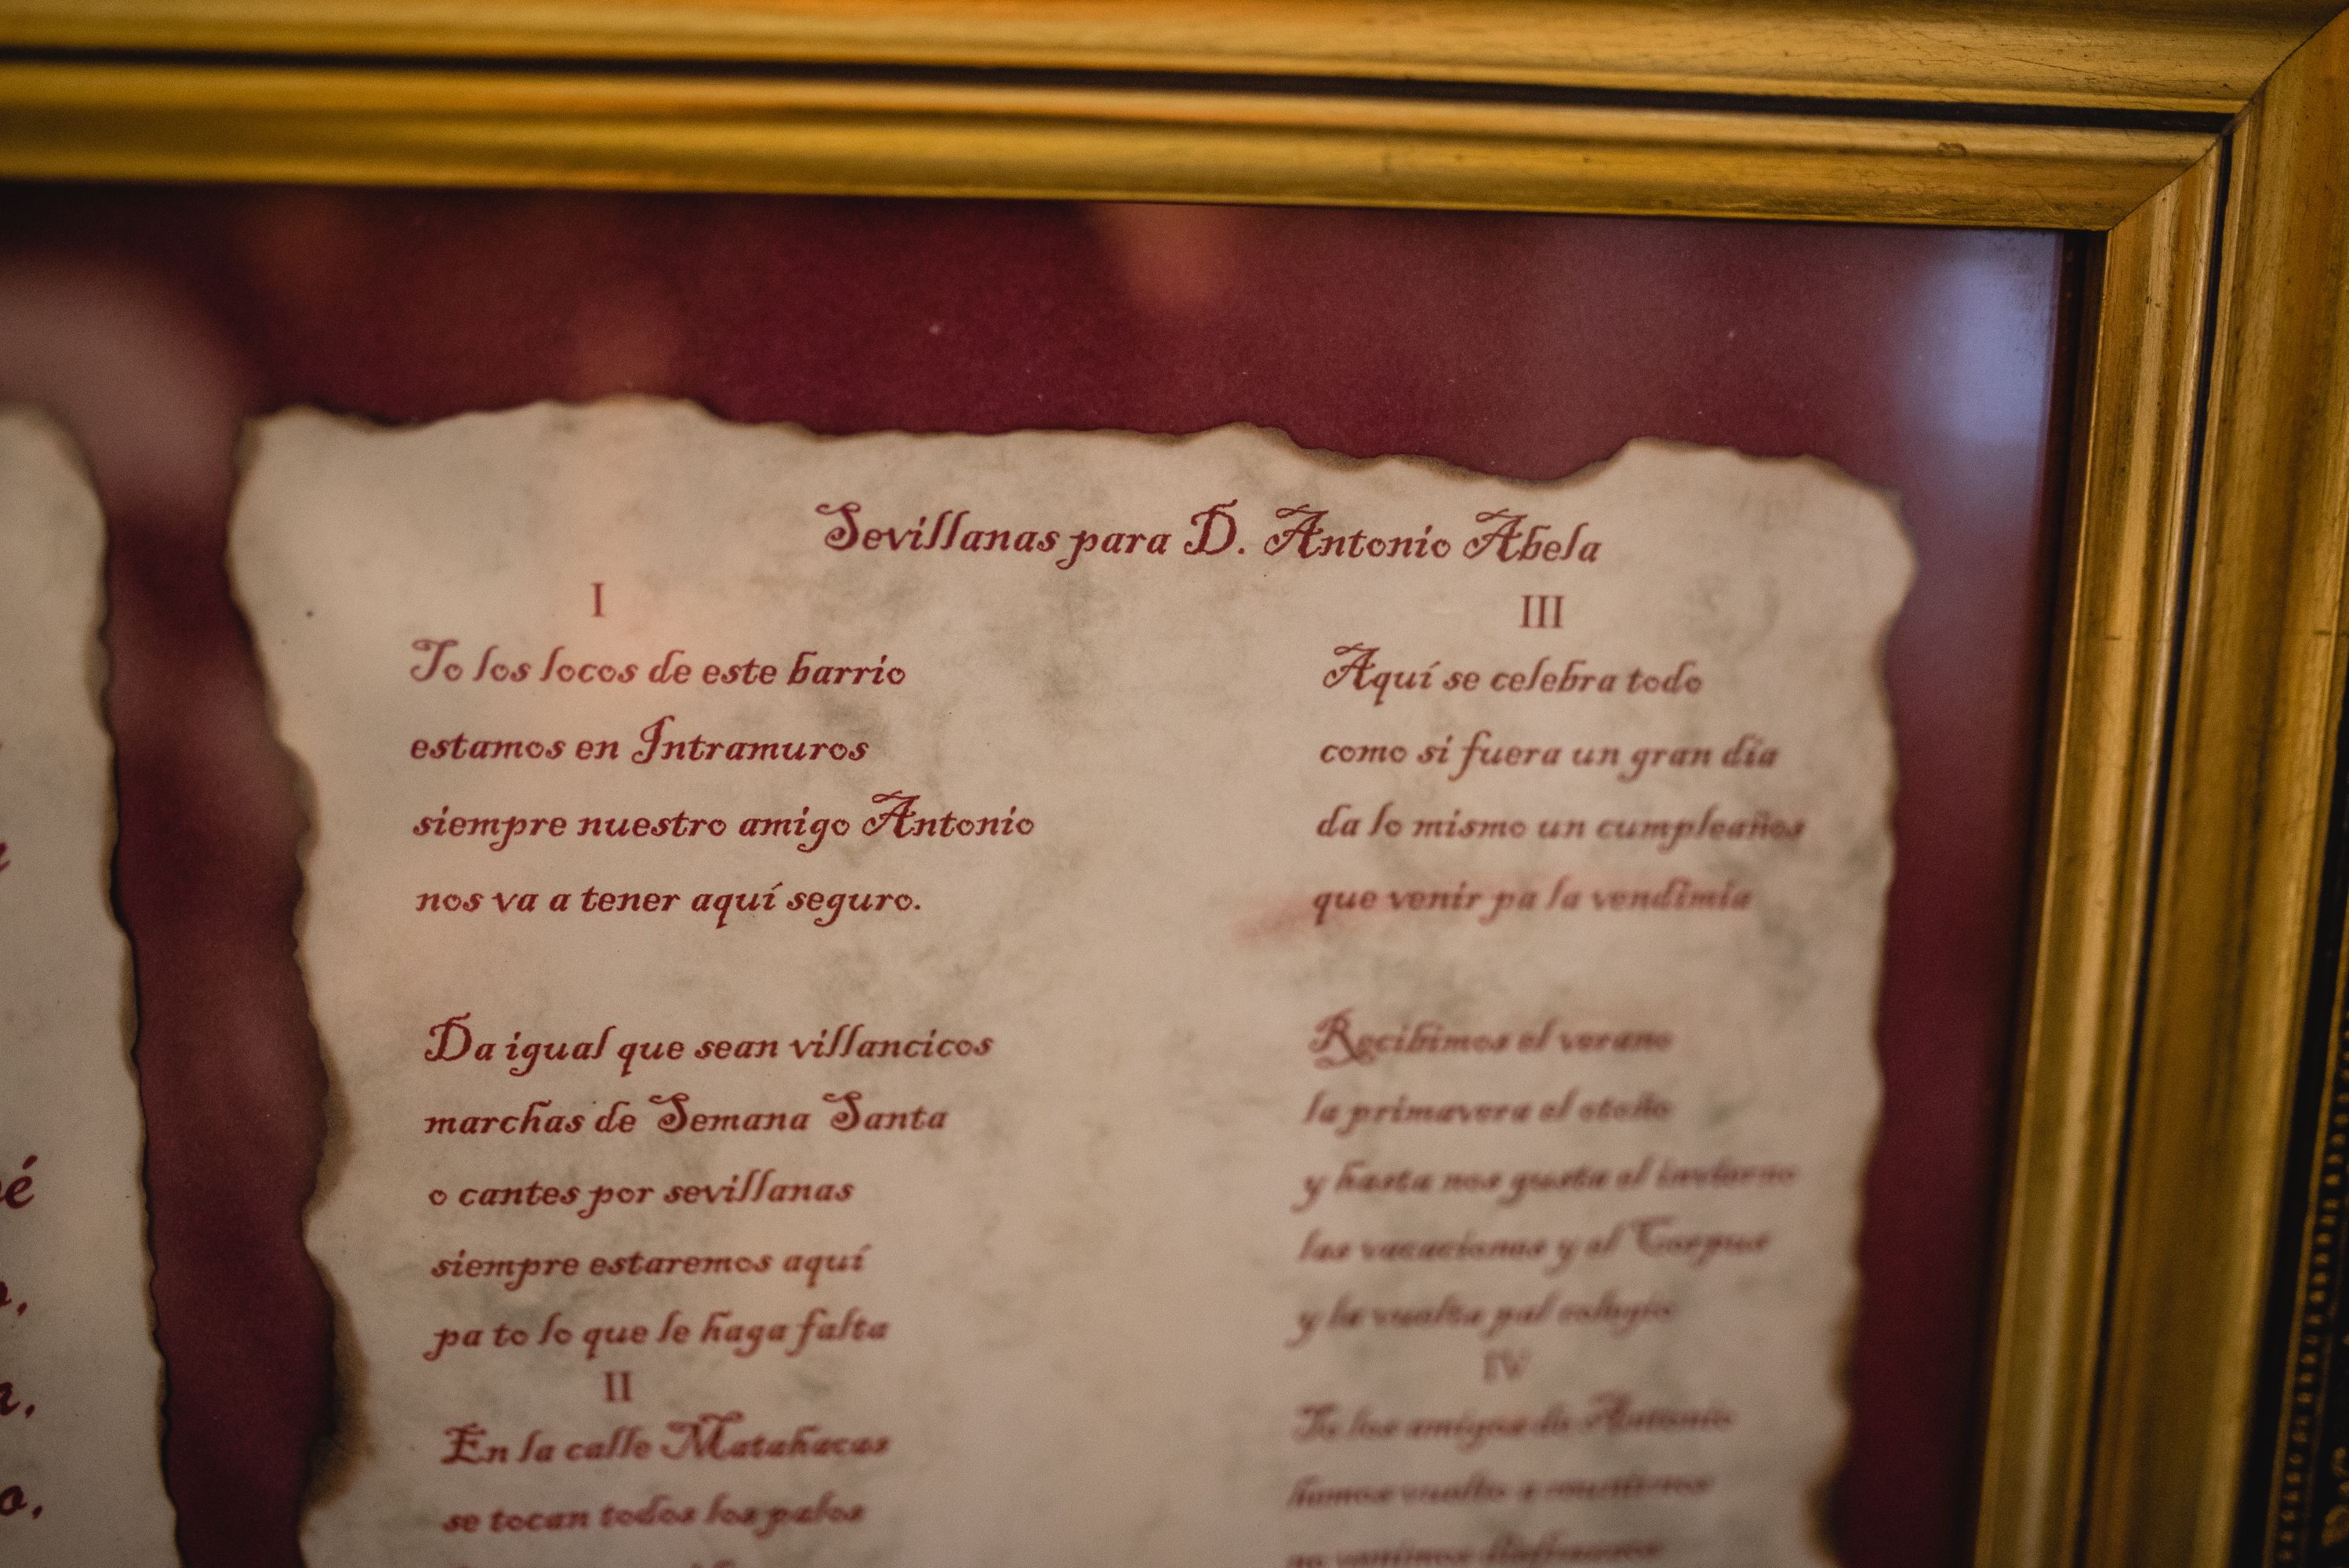 Sevillanas para D. Antonio Abela
I
To los locos de este barrio
estamos en Intramuros
siempre nuestro amigo Antonio
nos va a tener aquí seguro.
Da igual que sean villancicos
marchas de Semana Santa
o cantes por sevillanas
siempre estaremos aquí
pa to lo que le haga falta
II
En la calle Matahacas
se tocan todos los palos
III
Aquí se celebra todo
como si fuera un gran día
da lo mismo un cumpleaños
que venir pa la vendimia
Recibimos el verano
la primavera el otoño
y hasta nos gusta el invierno
las vacaciones y el Corpus
y la vuelta pal colegio
IV
To los amigos de Antonio
hemos vuelto a reunirnos